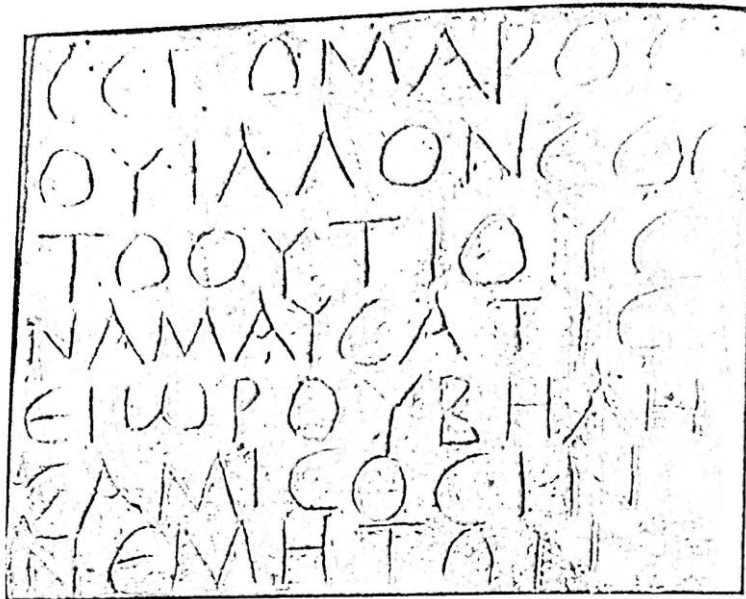 ϹΕΓΟΜΑΡΟϹ
ΟΥΙΛΛΟΝΕΟϹ
ΤΟΟΥΤΙΟΥϹ
ΝΑΜΑΥϹΑΤΙϹ
ΕΙΩΡΟΥΒΗΛΗ
ϹΑΜΙϹΟϹΙΝ
ΝΕΜΗΤΟΝ